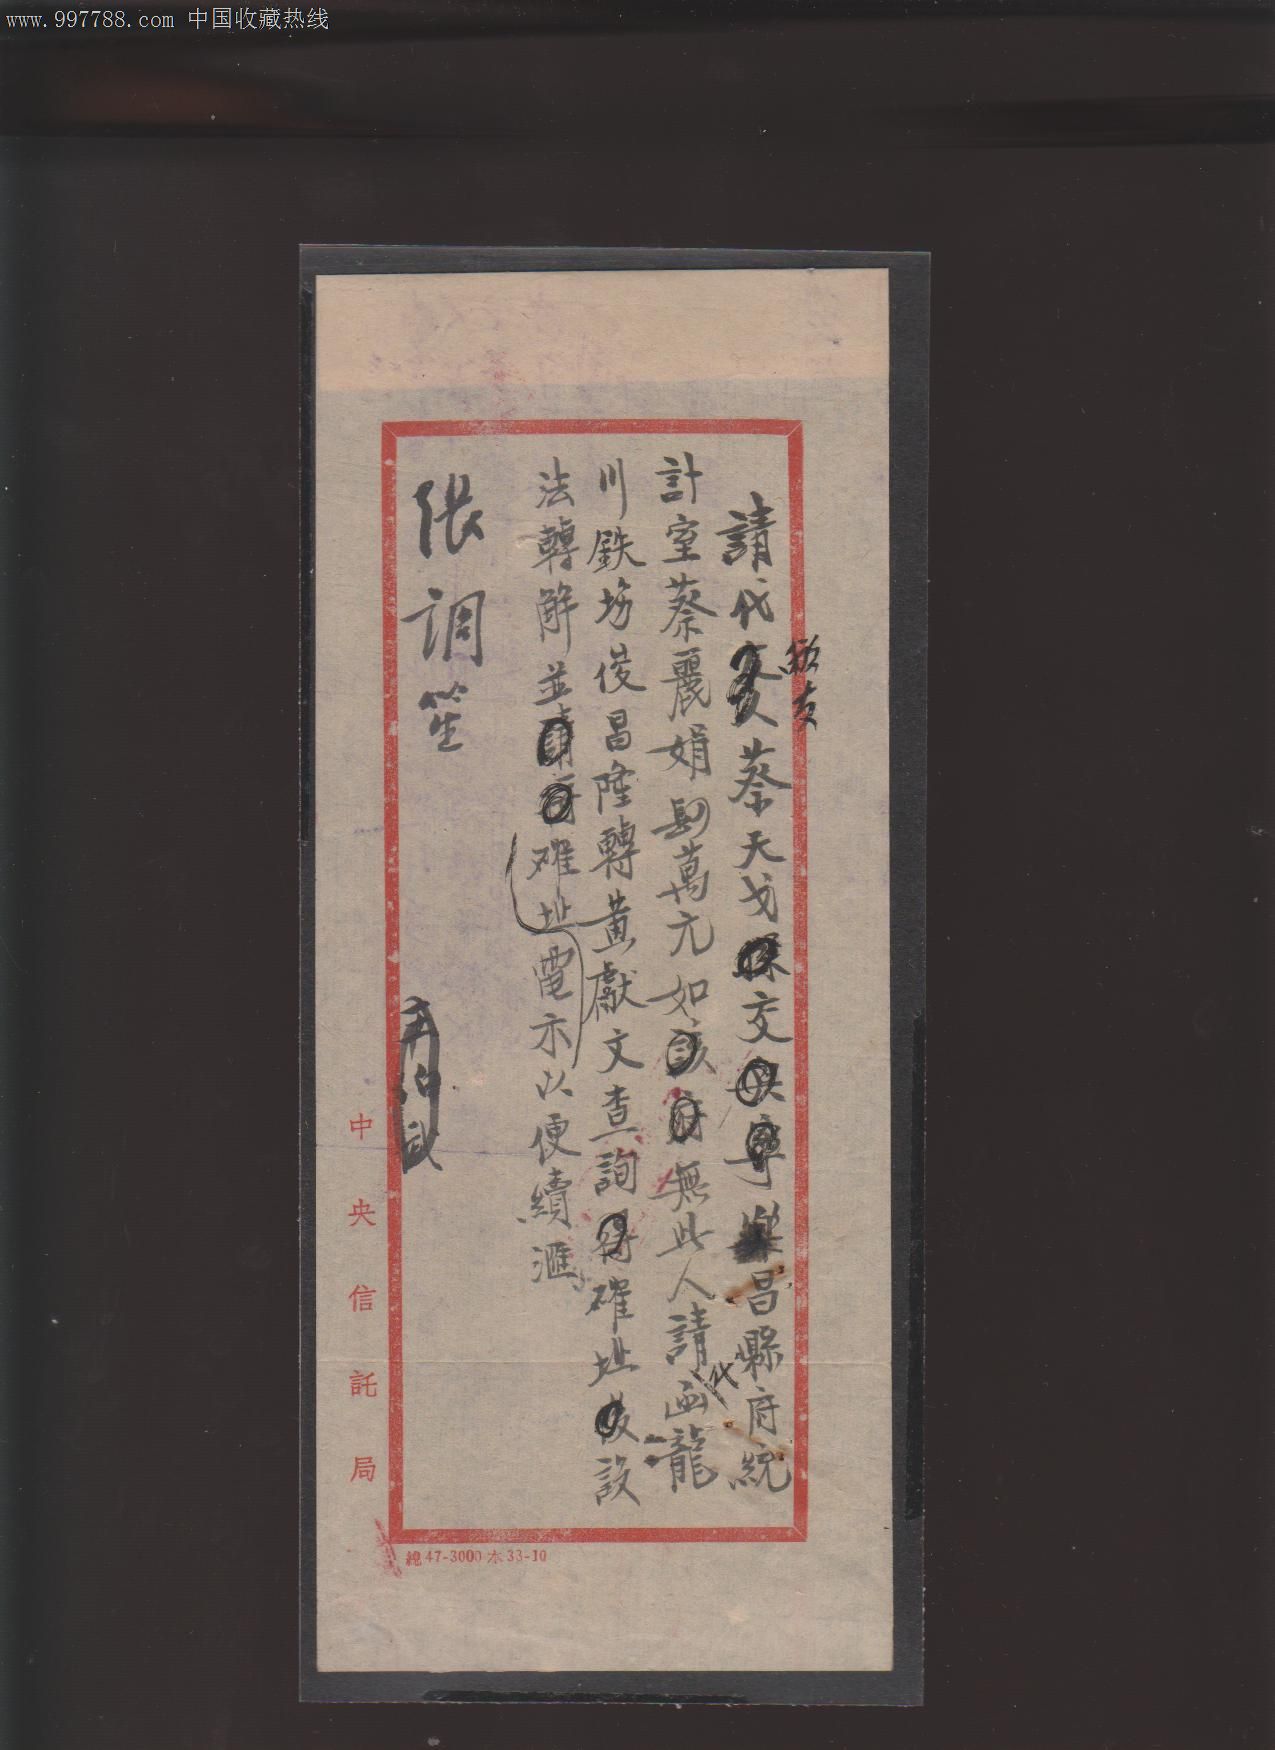 www.997788.com 中国收藏热线
請代蔡天戈交昌縣府統
計室蔡麗娟萬元如無此人請代函龍
川鉄坊俊昌隆轉黃獻文查詢確址設
法轉解並確址電示以便續滙
張調笙
中央信託局
總47-3000本33-10